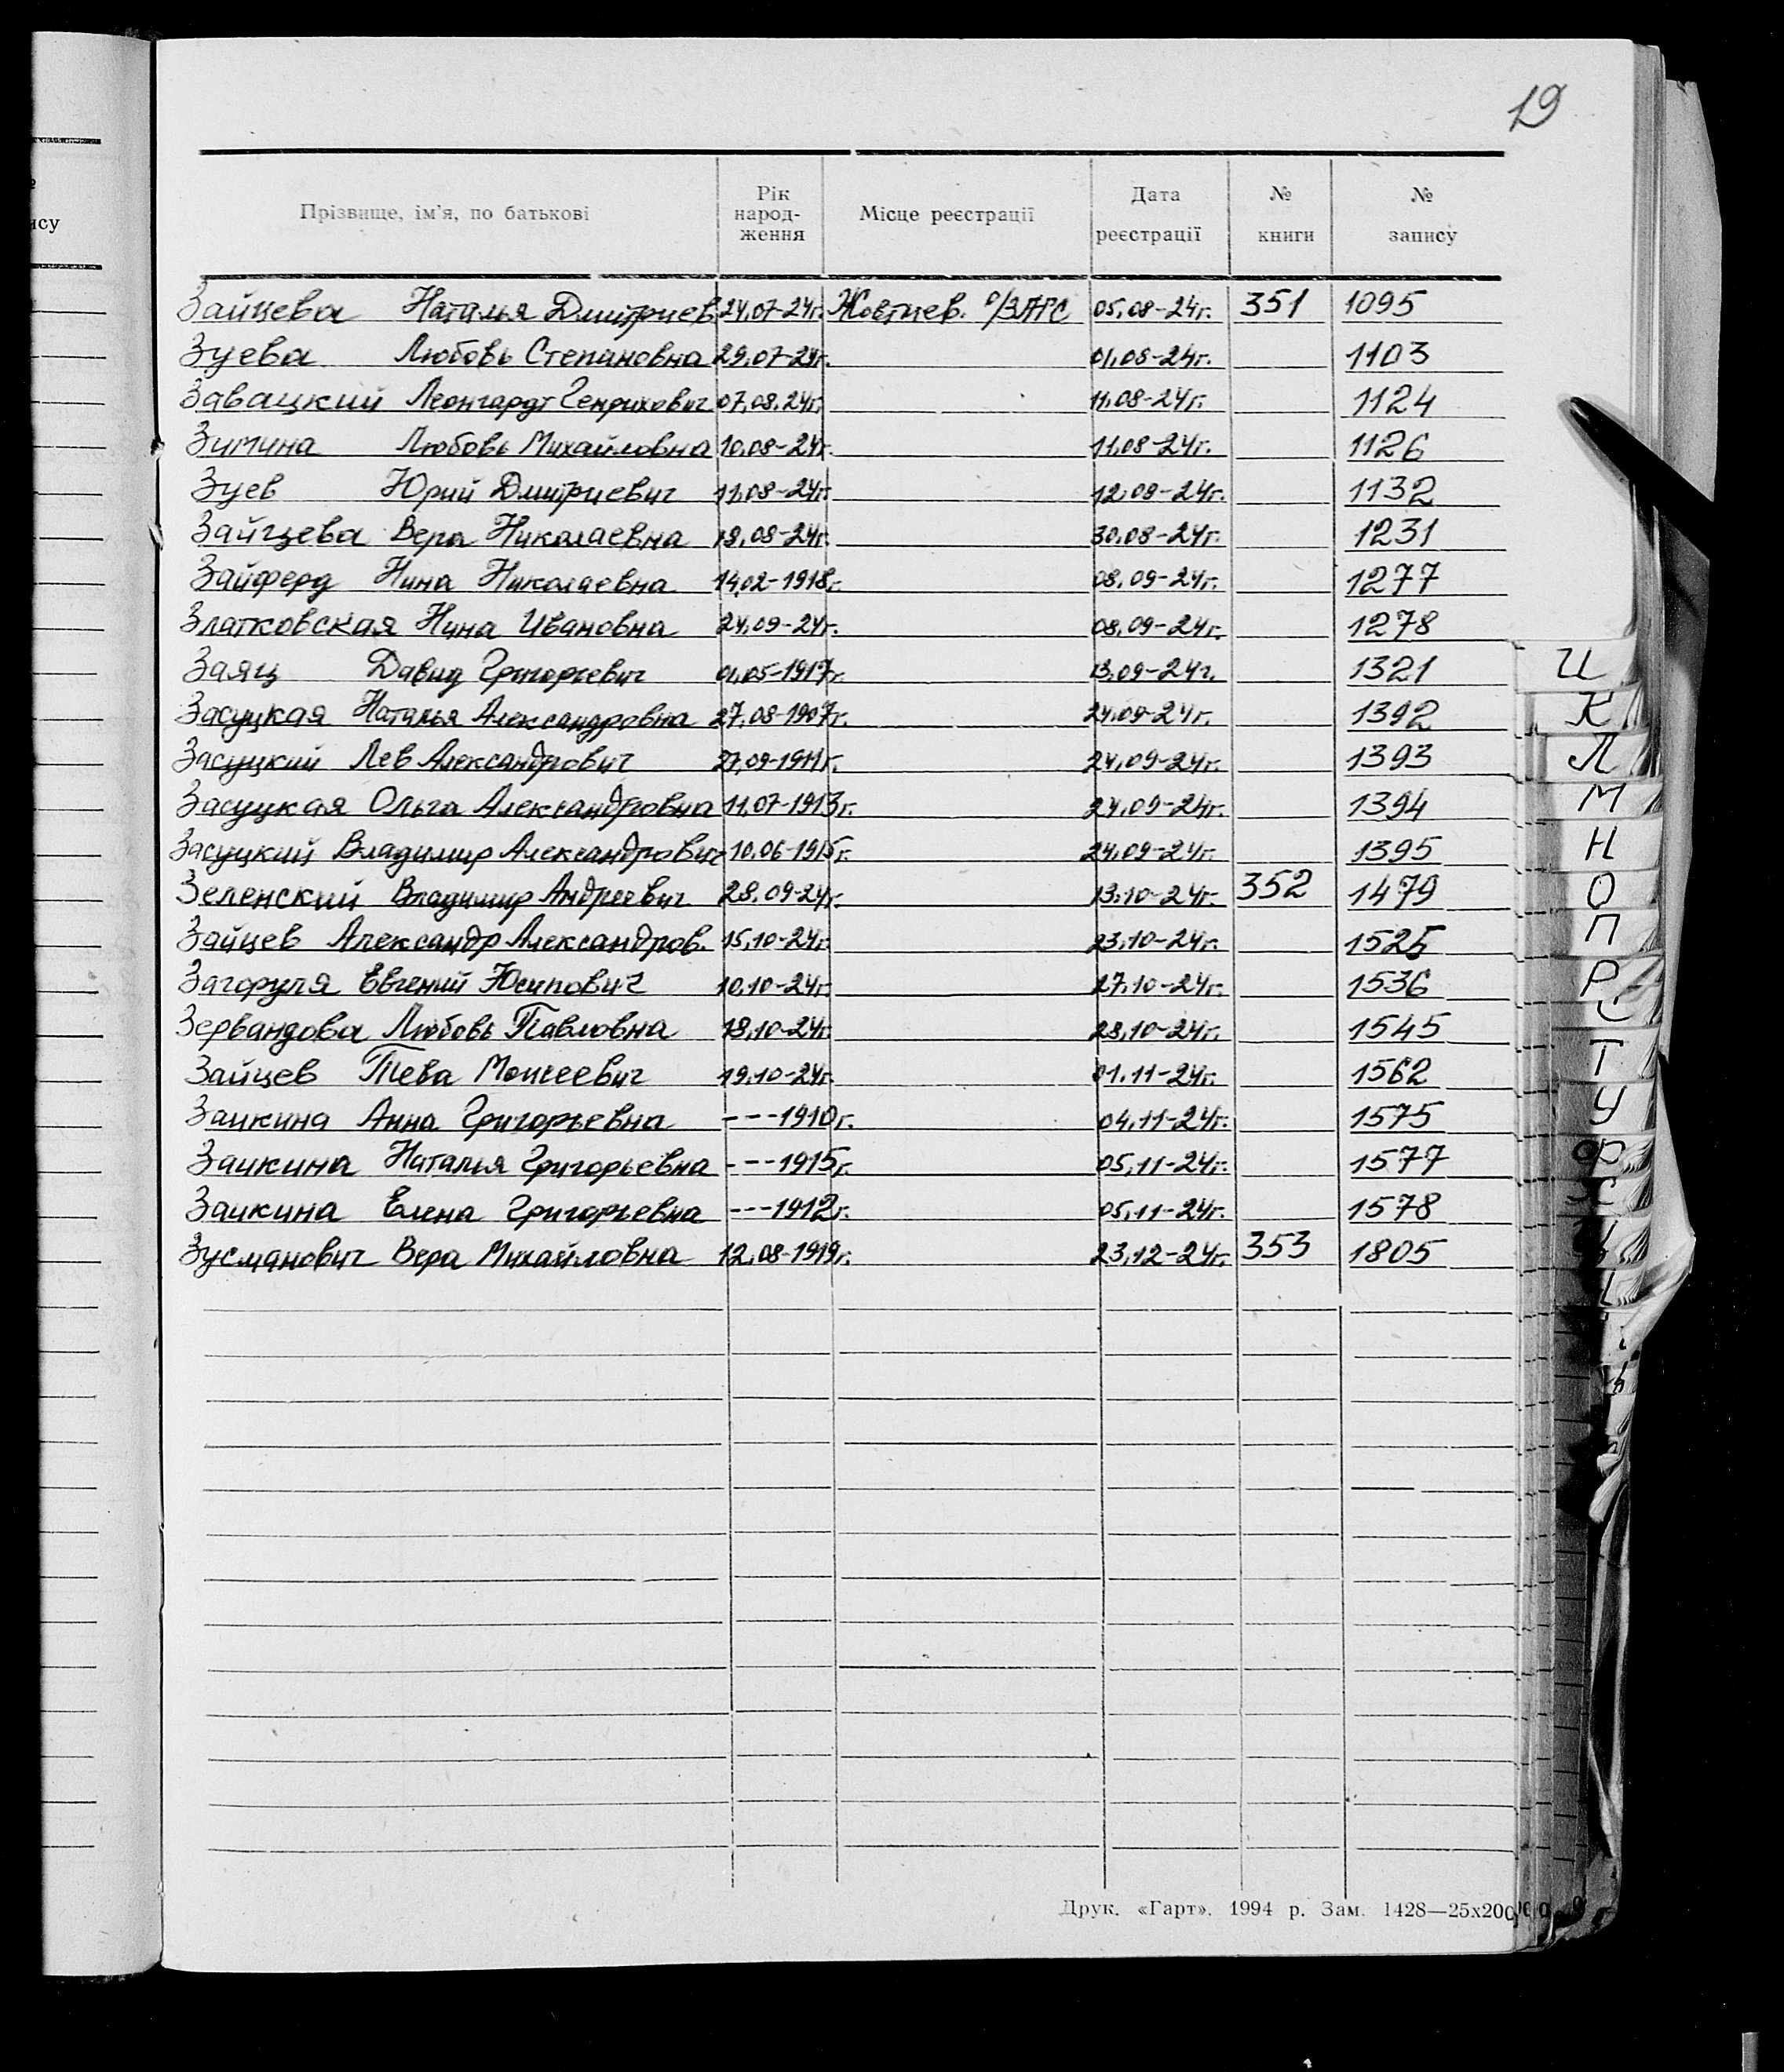 19
Прізвище, ім'я, по батькові Рік народ- ження Місце реєстрації Дата реєстрації № книги № запису
Зайцева Наталья Дмитриев. 24.07-24г. Жовтнев. о/ЗАГС 05.08-24г. 351 1095
Зуева Любовь Степановна 29.07-24г. 01.08-24г. 1103
Завацкий Леонгардт Генрихович 07.08.24г. 11.08-24г. 1124
Зимина Любовь Михайловна 10.08-24г. 11.08-24г. 1126
Зуев Юрий Дмитриевич 11.08-24г. 12.08-24г. 1132
Зайцева Вера Николаевна 19.08-24г. 30.08-24г. 1231
Зайферд Нина Николаевна 14.02-1918г. 08.09-24г. 1277
Златковская Нина Ивановна 24.09-24г. 08.09-24г. 1278
Заяц Давид Григорьевич 01.05-1917г. 13.09-24г. 1321
Засуцкая Наталья Александровна 27.08-1907г. 24.09-24г. 1392
Засуцкий Лев Александрович 24.09-24г. 1393
Засуцкая Ольга Александровна 11.07-1913г. 24.09-24г. 1394
Засуцкий Владимир Александрович 10.06-1915г. 24.09-24г. 1395
Зеленский Владимир Андреевич 28.09-24г. 13.10-24г. 352 1479
Зайцев Александр Александров. 15.10-24г. 23.10-24г. 1525
Загоруля Евгений Юсипович 10.10-24г. 27.10-24г. 1536
Зервандова Любовь Павловна 18.10-24г. 28.10-24г. 1545
Зайцев Тева Моисеевич 19.10-24г. 01.11-24г. 1562
Заикина Анна Григорьевна ---1910г. 04.11-24г. 1575
Заикина Наталья Григорьевна ---1915г. 05.11-24г. 1577
Заикина Елена Григорьевна ---1912г. 05.11-24г. 1578
Зусманович Вера Михайловна 12.08-1919г. 23.12-24г. 353 1805
И
К
Л
М
Н
О
П
Р
С
Т
У
Ф
Х
Друк. «Гарт». 1994 р. Зам. 1428—25х200